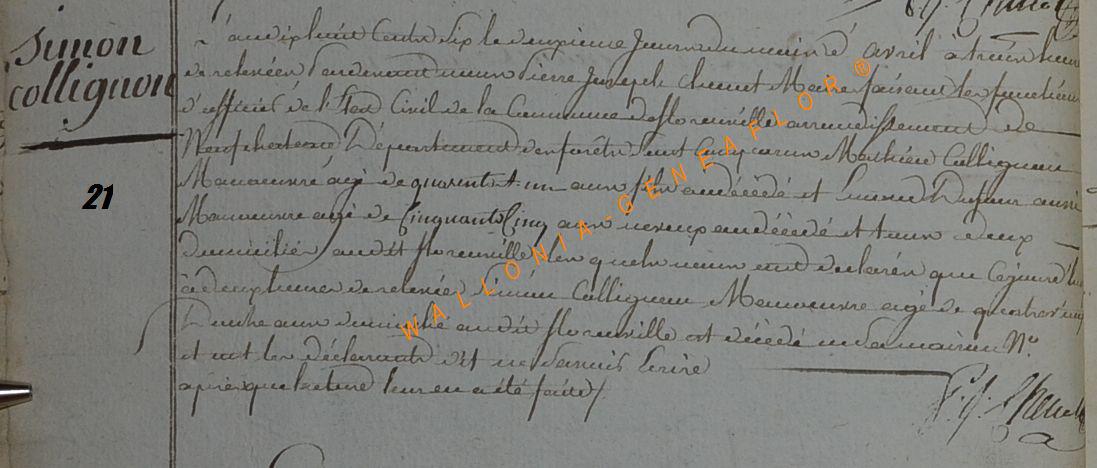 Simon
Collignon
21
L'an dix huit Cents dix le deuxieme Jour du mois d'avril a trois heures
de relevée Pardevant nous Pierre Joseph Maire faisant les fonctions
d'officier de l'Etat Civil de la Commune de florenville arrondissement de
Neufchateau Département des forêts sont Comparus Mathieu Collignon
Manoeuvre agé de quarente et un ans fils audécédé et aussi
Manoeuvre agé de Cinquante Cinq ans neveux audécédé et tous deux
domiciliés audit florenville lesquels nous ont declarés que Cejourd'hui
à deux heures de relevée Simon Collignon Manoeuvre agé de quatrevingt
Douze ans domicilié audit florenville est décédé en sa maison N°
et ont les déclarants dit ne Savoir Ecrire
après que lecture leur en a été faite
P. J.
WALLONIA-GÉNÉAFLOR®